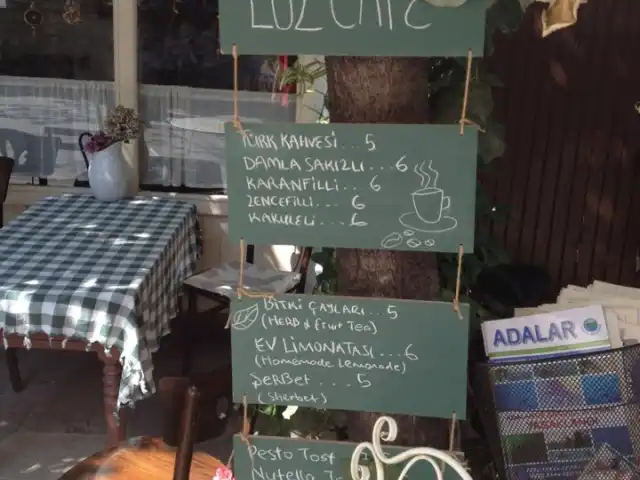 LUZ CAFE
TÜRK KAHVESİ... 5
DAMLA SAKIZLI... 6
KARANFİLLİ... 6
ZENCEFİLLİ... 6
KAKULELİ... 6
BİTKİ ÇAYLARI...5
(Herb & Fruit Tea)
EV LİMONATASI...6
(Homemade Lemonade)
ŞERBET ....5
(Sherbet)
Pesto Tost
Nutella
ADALAR